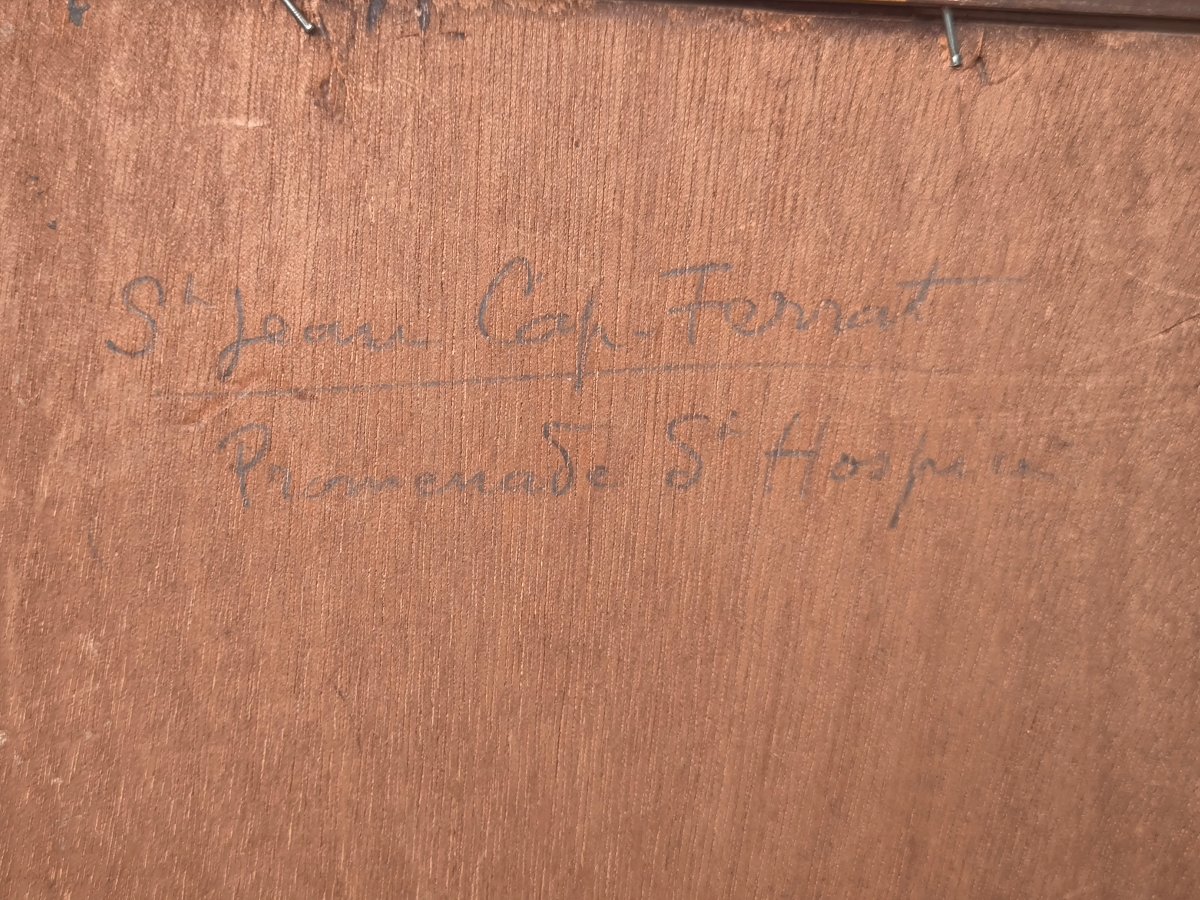 St Jean Cap-Ferrat
Promenade St Hospice